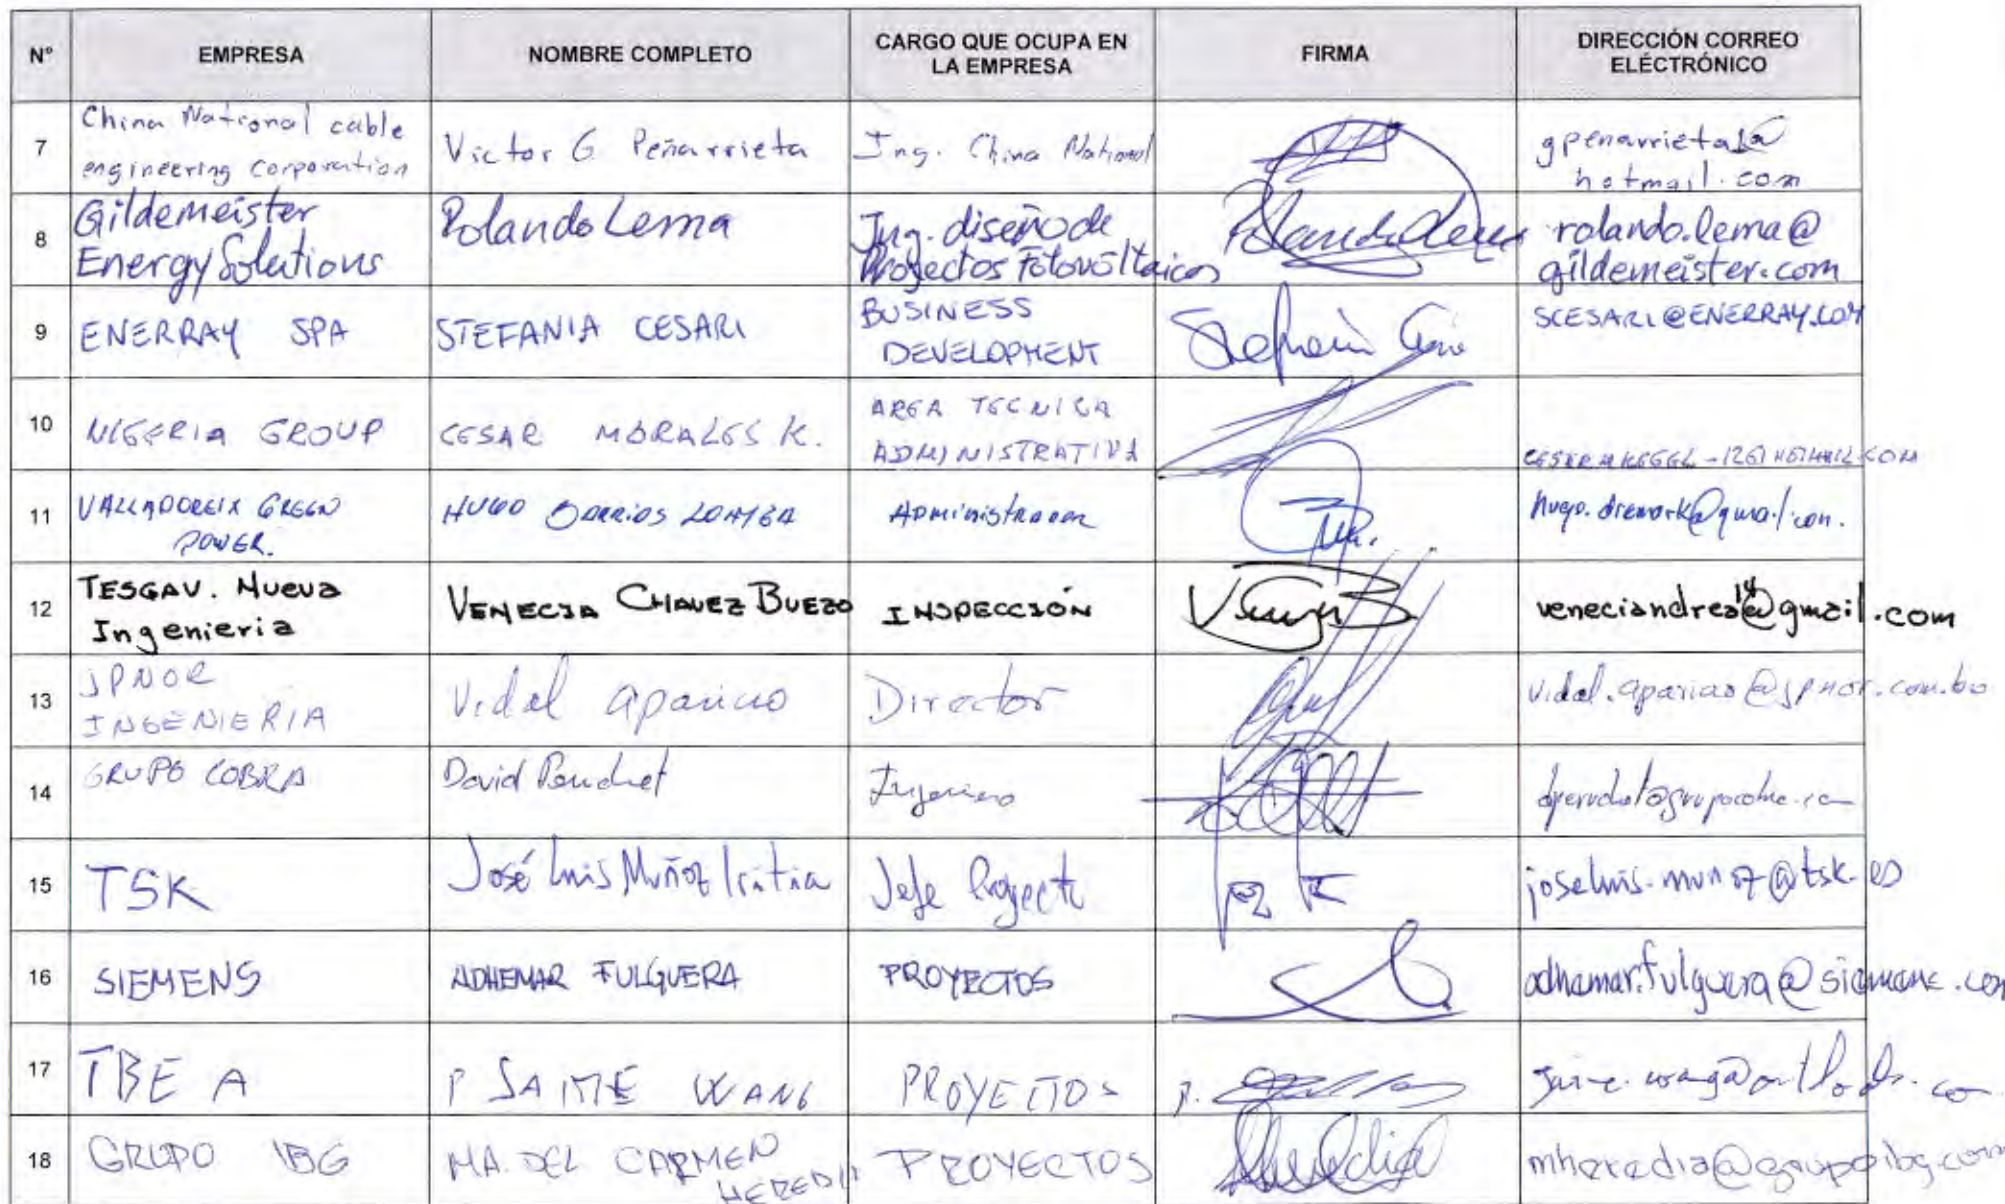 N° EMPRESA NOMBRE COMPLETO CARGO QUE OCUPA EN LA EMPRESA FIRMA DIRECCIÓN CORREO ELÉCTRÓNICO
7 China National cable engineering corporation Victor G. Peñarrieta Ing. China National hotmail.com
8 Gildemeister Energy Solutions Rolando Lema Ing. diseño de Proyectos Fotovóltaicos rolando.lema@gildemeister.com
9 ENERRAY SPA STEFANIA CESARI BUSINESS DEVELOPMENT SCESARI@ENERRAY.COM
10 NIGERIA GROUP CESAR MORALES K. AREA TECNICA ADMINISTRATIVA
11 VALLADOREIX GREEN POWER. HUGO BARRIOS Administrador
12 TESGAV. Nueva Ingenieria VENECIA CHAVEZ BUEZO INSPECCIÓN veneciandrea14@gmail.com
13 JPNOR INGENIERIA Vidal aparicio Director vidal.aparicio@jpnor.com.bo
14 GRUPO COBRA David Ingeniero
15 TSK José Luis Muñoz Jefe Proyecto joseluis.munoz@tsk.es
16 SIEMENS ADHEMAR FULGUERA PROYECTOS adhemar.fulguera@siemens.com
17 TBE A P JAIME WANG PROYECTOS P.
18 GRUPO IBG MA. DEL CARMEN HEREDIA PROYECTOS mheredia@grupoibg.com